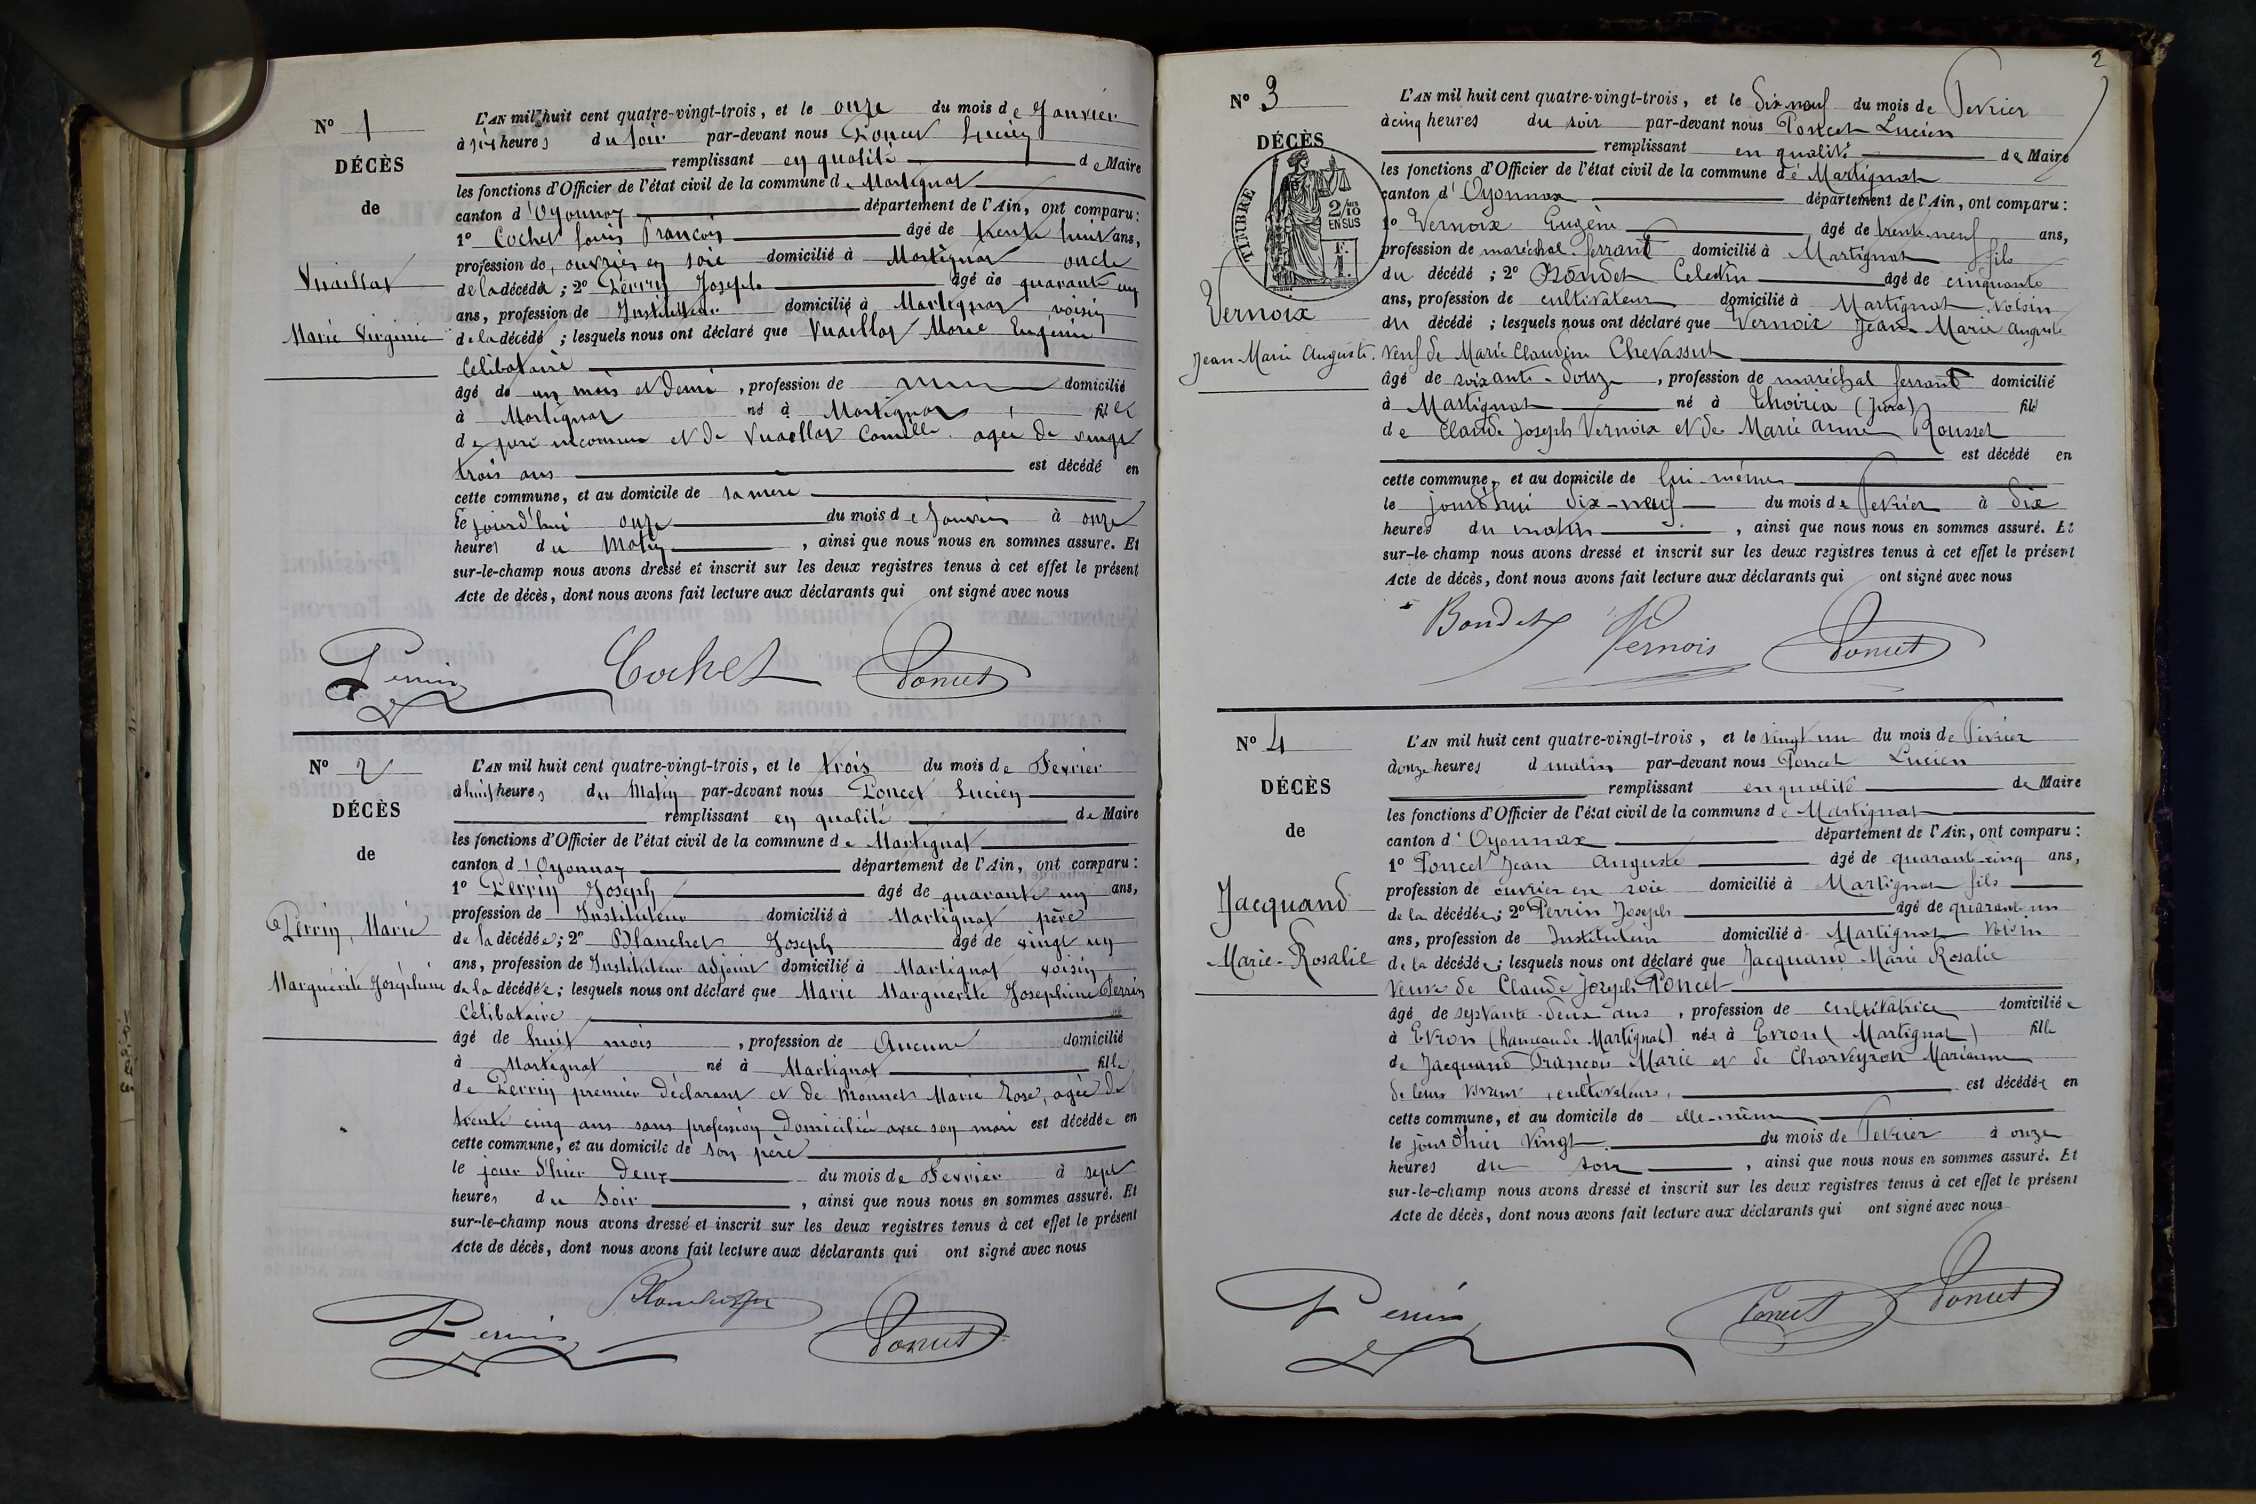 N° 1
DÉCÈS
de
Vuaillat
Marie Virginie
L'AN mil huit cent quatre-vingt-trois, et le onze du mois de Janvier
à six heures du soir par-devant nous Poncet Lucien
remplissant en qualité de Maire
les fonctions d'Officier de l'état civil de la commune de Martignat
canton d'Oyonnax département de l'Ain, ont comparu :
1° Cochet Louis François âgé de trente huit ans,
profession de ouvrier en soie domicilié à Martignat oncle
de la décédée ; 2° Perrin Joseph âgé de quarante un
ans, profession de Instituteur domicilié à Martignat voisin
de la décédé ; lesquels nous ont déclaré que Vuaillat Marie Eugénie
Célibataire
âgé de un mois et demi , profession de domicilié
à Martignat né à Martignat fille
de père inconnu et de Vuaillat Camille agée de vingt
trois ans est décédé en
cette commune, et au domicile de sa mère
le jourd'hui onze du mois de Janvier à onze
heures du Matin , ainsi que nous nous en sommes assuré. Et
sur-le-champ nous avons dressé et inscrit sur les deux registres tenus à cet effet le présent
Acte de décès, dont nous avons fait lecture aux déclarants qui ont signé avec nous
Perrin Cochet Poncet
N° 2
DÉCÈS
de
Perrin, Marie
Marguérite Joséphine
L'AN mil huit cent quatre-vingt-trois, et le trois du mois de Fevrier
à huit heures du Matin par-devant nous Poncet Lucien
remplissant en qualité de Maire
les fonctions d'Officier de l'état civil de la commune de Martignat
canton d'Oyonnax département de l'Ain, ont comparu :
1° Perrin Joseph âgé de quarante un ans,
profession de Instituteur domicilié à Martignat père
de la décédée ; 2° Blanchet Joseph âgé de vingt un
ans, profession de Instituteur adjoint domicilié à Martignat voisin
de la décédée ; lesquels nous ont déclaré que Marie Marguerite Josephine Perrin
Célibataire
âgé de huit mois , profession de Aucune domicilié
à Martignat né à Martignat fille
de Perrin premier déclarant et de Monnet Marie Rose, agée de
trente cinq ans sans profession Domiciliée avec son mari est décédée en
cette commune, et au domicile de son père
le jour d'hier Deux du mois de Fevrier à sept
heures du Soir , ainsi que nous nous en sommes assuré. Et
sur-le-champ nous avons dressé et inscrit sur les deux registres tenus à cet effet le présent
Acte de décès, dont nous avons fait lecture aux déclarants qui ont signé avec nous
Perrin Poncet
2
N° 3
DÉCÈS
TIMBRE
2/10
EN SUS
F.
1.
Vernoix
Jean-Marie Auguste.
L'AN mil huit cent quatre-vingt-trois, et le dix neuf du mois de Fevrier
à cinq heures du soir par-devant nous Poncet Lucien
remplissant en qualité de Maire
les fonctions d'Officier de l'état civil de la commune de Martignat
canton d'Oyonnax département de l'Ain, ont comparu :
1° Vernoix Eugène âgé de trente-neuf ans,
profession de maréchal ferrant domicilié à Martignat fils
du décédé ; 2° Bondet Celestin âgé de cinquante
ans, profession de cultivateur domicilié à Martignat voisin
du décédé ; lesquels nous ont déclaré que Vernoix Jean-Marie Auguste
veuf de Marie Claudine Chevassut
âgé de soixante-douze , profession de maréchal ferrant domicilié
à Martignat né à Thoiria (Jura) fils
de Claude Joseph Vernoix et de Marie Anne Rousset
est décédé en
cette commune, et au domicile de lui-même
le jourd'hui dix-neuf du mois de Fevrier à dix
heures du matin , ainsi que nous nous en sommes assuré. Et
sur-le-champ nous avons dressé et inscrit sur les deux registres tenus à cet effet le présent
Acte de décès, dont nous avons fait lecture aux déclarants qui ont signé avec nous
Bondet Vernois Poncet
N° 4
DÉCÈS
de
Jacquand
Marie-Rosalie
L'AN mil huit cent quatre-vingt-trois, et le vingt un du mois de Fevrier
à onze heures d matin par-devant nous Poncet Lucien
remplissant en qualité de Maire
les fonctions d'Officier de l'état civil de la commune de Martignat
canton d'Oyonnax département de l'Ain, ont comparu :
1° Poncet Jean Auguste âgé de quarante-cinq ans,
profession de ouvrier en soie domicilié à Martignat fils
de la décédée ; 2° Perrin Joseph âgé de quarante un
ans, profession de Instituteur domicilié à Martignat voisin
de la décédée ; lesquels nous ont déclaré que Jacquand Marie Rosalie
veuve de Claude Joseph Poncet
âgé de septante-deux ans , profession de cultivatrice domiciliée
à Evron (hameau de Martignat) née à Evron (Martignat) fille
de Jacquand François Marie et de Charveyron Marianne
de leurs vivant cultivateurs, est décédée en
cette commune, et au domicile de elle-même
le jour d'hier vingt du mois de Fevrier à onze
heures du soir , ainsi que nous nous en sommes assuré. Et
sur-le-champ nous avons dressé et inscrit sur les deux registres tenus à cet effet le présent
Acte de décès, dont nous avons fait lecture aux déclarants qui ont signé avec nous
Perrin Poncet Poncet